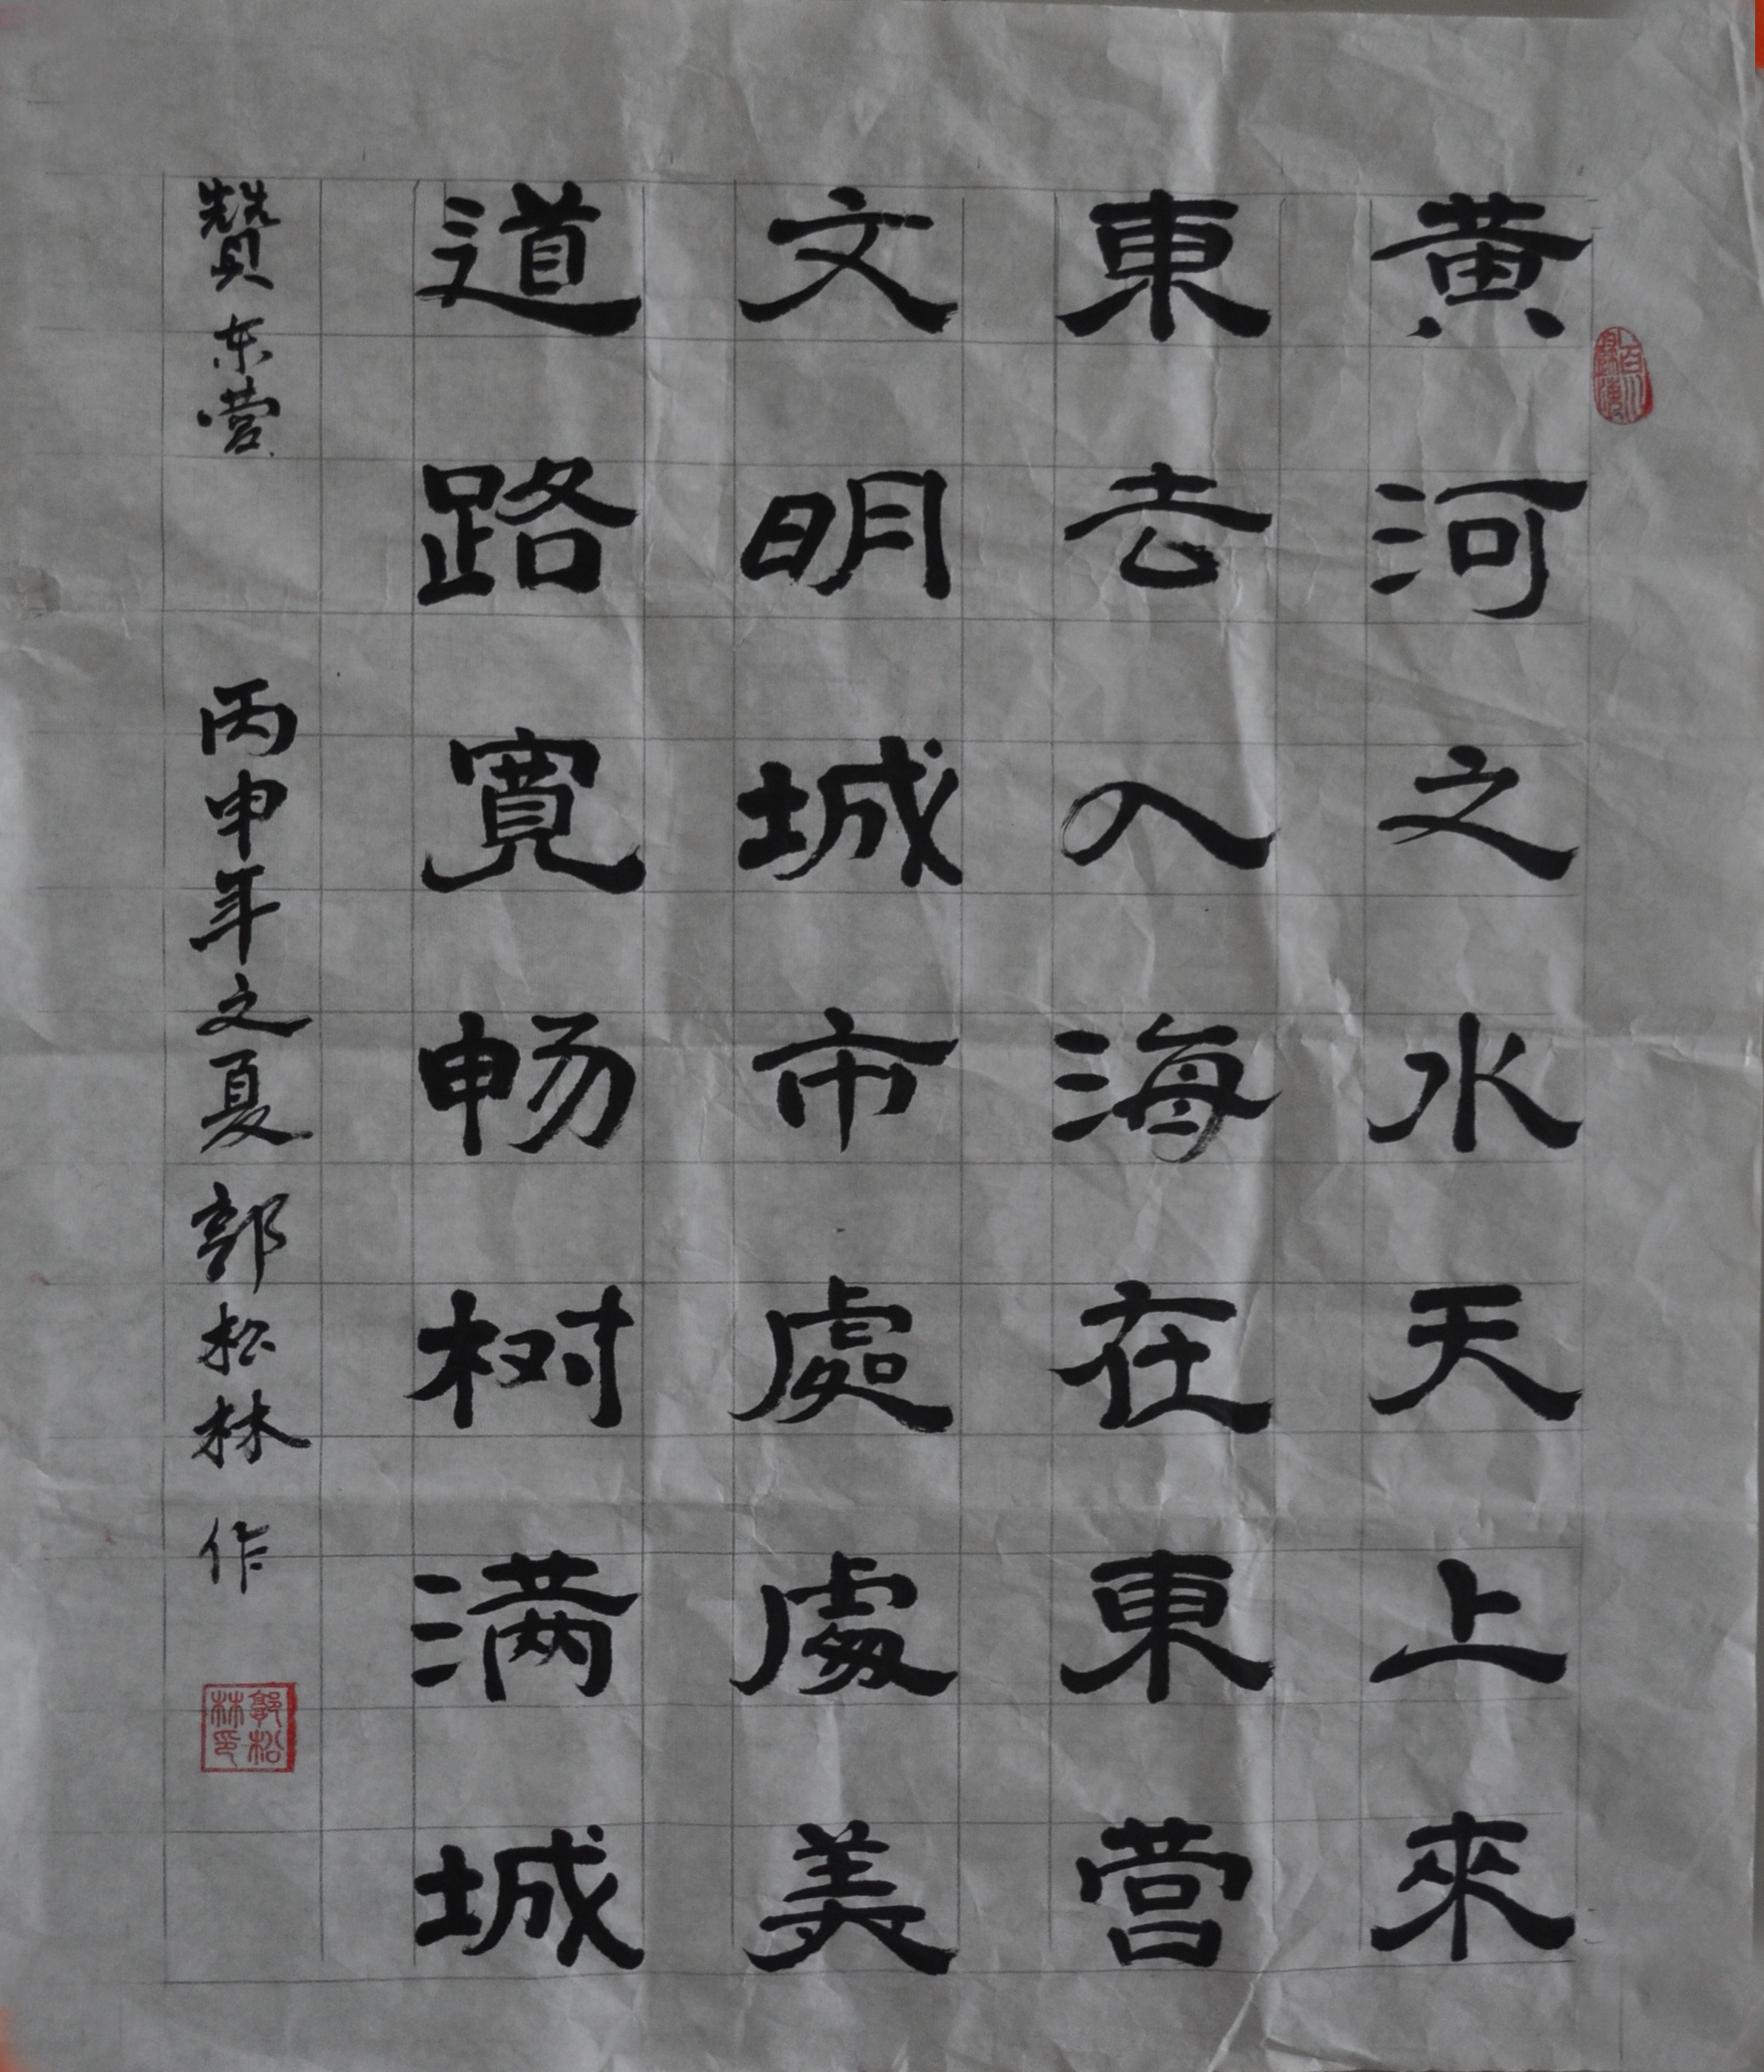 黄河之水天上來
東去入海在東营
文明城市處處美
道路寬畅树满城
赞东营 丙申年之夏 郭松林作
郭松林印